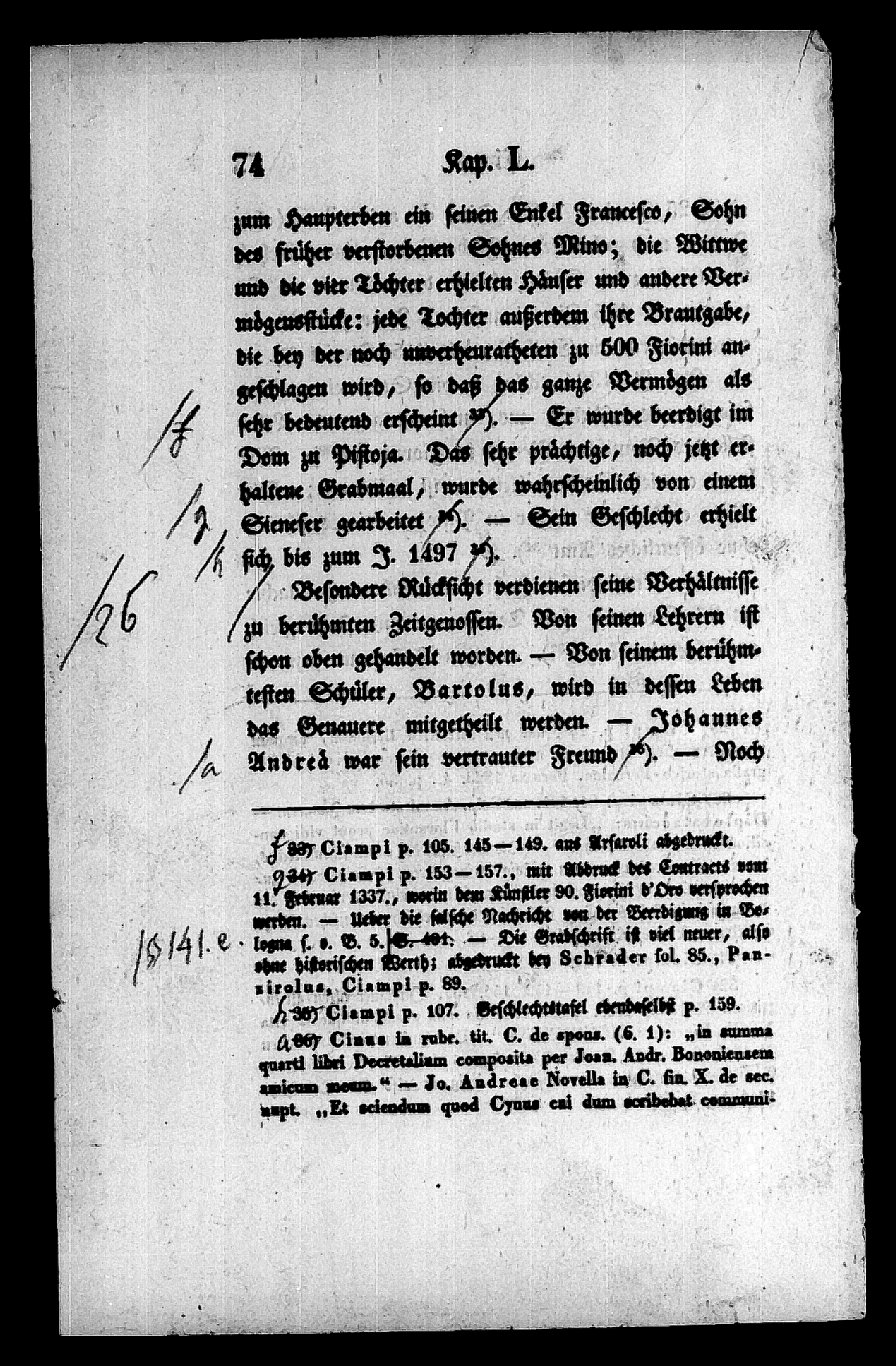 74 Kap. L.
zum Haupterben ein seinen Enkel Francesco, Sohn
des früher verstorbenen Sohnes Mino; die Wittwe
und die vier Töchter erhielten Häuser und andere Ver-
mögensstücke: jede Tochter außerdem ihre Brautgabe,
die bey der noch unverheuratheten zu 500 Fiorini an-
geschlagen wird, so daß das ganze Vermögen als
sehr bedeutend erscheint ³³). — Er wurde beerdigt im
/f
Dom zu Pistoja. Das sehr prächtige, noch jetzt er-
haltene Grabmaal, wurde wahrscheinlich von einem
Sieneser gearbeitet ³⁴). — Sein Geschlecht erhielt
/g
sich bis zum J. 1497 ³⁵).
/h
Besondere Rücksicht verdienen seine Verhältnisse
/26
zu berühmten Zeitgenossen. Von seinen Lehrern ist
schon oben gehandelt worden. — Von seinem berühm-
testen Schüler, Bartolus, wird in dessen Leben
das Genauere mitgetheilt werden. — Johannes
Andreä war sein vertrauter Freund ³⁶). — Noch
/a
f 33) Ciampi p. 105. 145—149. aus Arfaroli abgedruckt.
g 34) Ciampi p. 153—157., mit Abdruck des Contracts vom
11. Februar 1337., worin dem Künstler 90. Fiorini d'Oro versprochen
werden. — Ueber die falsche Nachricht von der Beerdigung in Bo-
logna s. o. B. 5. S. 401. — Die Grabschrift ist viel neuer, also
/§ 141. e.
ohne historischen Werth; abgedruckt bey Schrader fol. 85., Pan-
zirolus, Ciampi p. 89.
h 35) Ciampi p. 107. Geschlechtstafel ebendaselbst p. 159.
a 36) Cinus in rubr. tit. C. de spons. (6. 1): „in summa
quarti libri Decretalium composita per Joan. Andr. Bononiensem
amicum meum.“ — Jo. Andreae Novella in C. fin. X. de sec.
nupt. „Et sciendum quod Cynus cui dum scribebat communi-